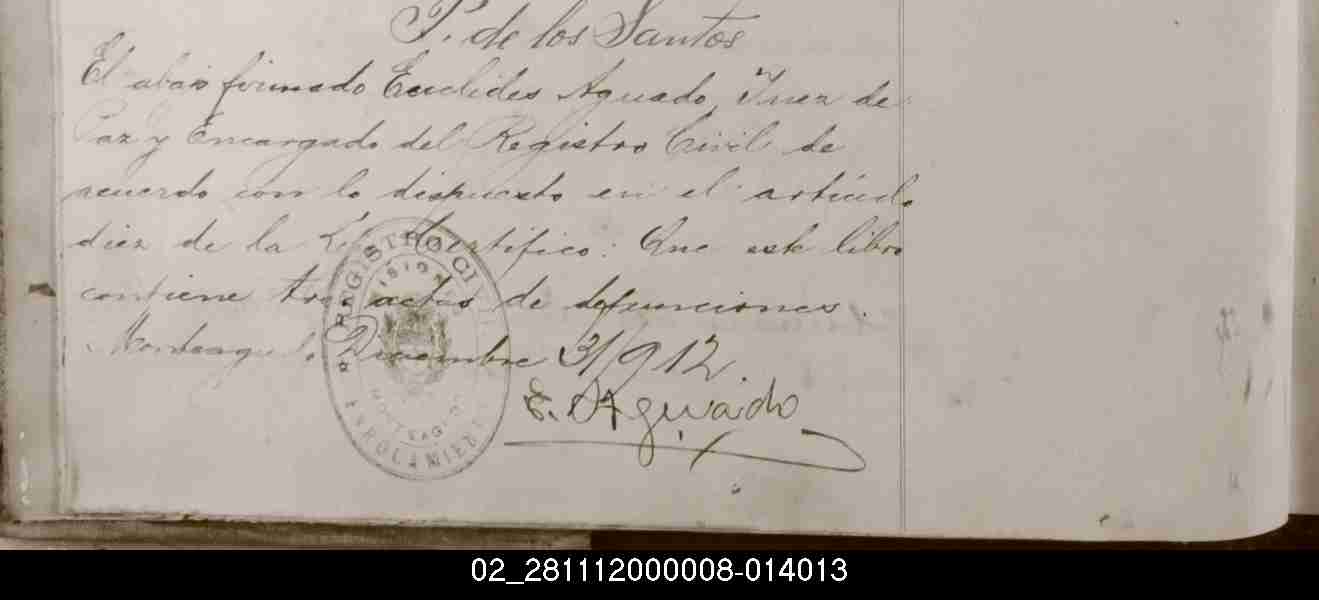 P. de los Santos
El abajo firmado Euclides Aguado, Juez de
Paz y Encargado del Registro Civil de
acuerdo con lo dispuesto en el artículo
diez de la Ley Certifico: Que este libro
contiene actas de defunciones.
Monteagudo Diciembre 31/912.
E. Aguado
REGISTRO CIVIL
MONTEAGUDO
ENROLAMIENTO
02_281112000008-014013